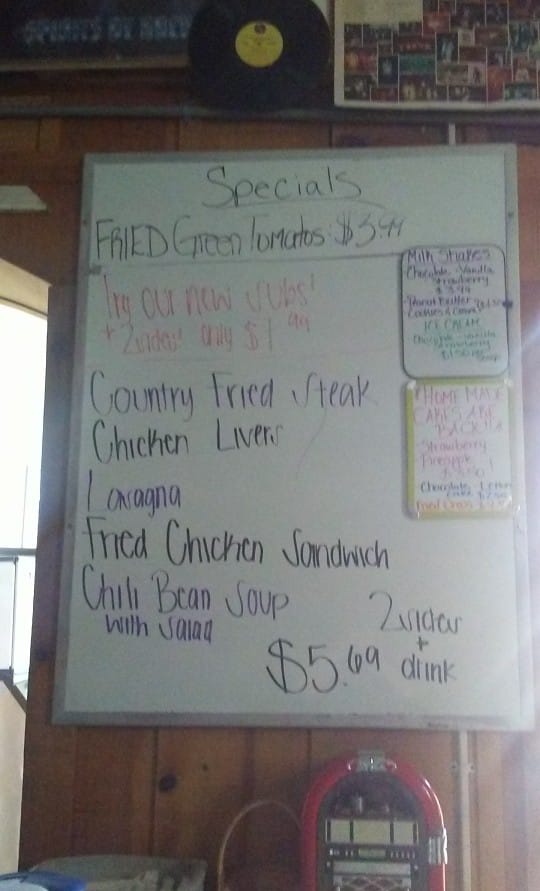 Specials
FRIED Green Tomatos: $3.99
Try our new subs!
+ 2 sides! only $7.99
Country Fried Steak
Chicken Livers
Lasagna
Fried Chicken Sandwich
Chili Bean Soup
with salad
2 sides
+
$5.69 drink
Milk Shakes
Chocolate - Vanilla
Strawberry
$3.99
Peanut Butter
Cookies & Cream
ICE CREAM
Chocolate - Vanilla
Strawberry
$1.50 per
Scoop
HOME MADE
CAKES ARE
BACK!!
Strawberry
Pineapple
Chocolate - Lemon
cake $2.50